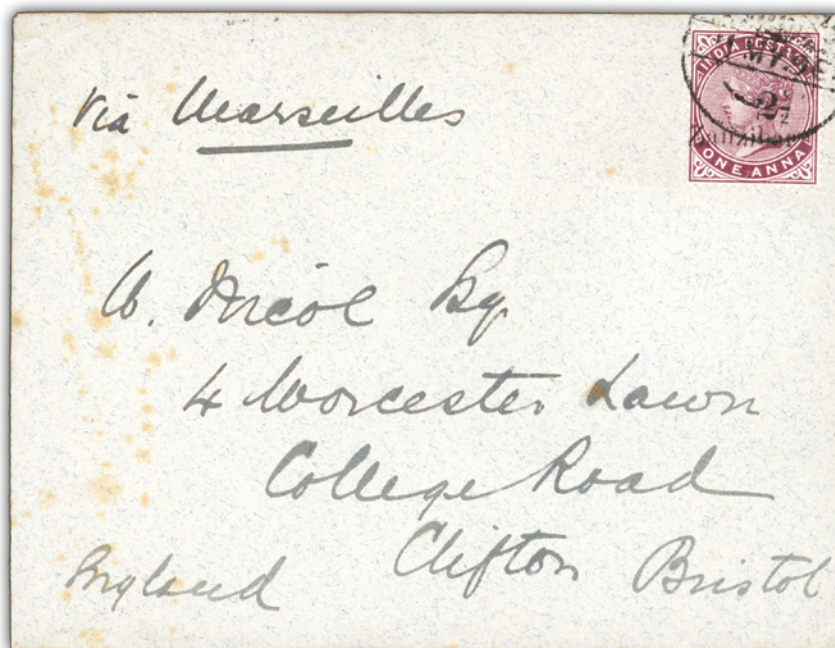 Via Marseilles
INDIA POSTAGE
2½
Zanzibar
ONE ANNA
W. Nicol Esq
4 Worcester Lawn
College Road
Clifton Bristol
England